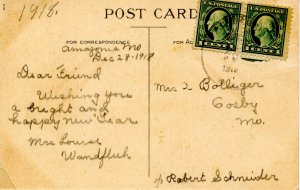 1918.
POST CARD
FOR CORRESPONDENCE
FOR AD
Amazonia Mo
Dec 28-1918
Dear Friend
Wishing you
a bright and
happy New Year
Mrs Louise
Wandfluh
Mrs L Bolliger
Cosby
Mo.
c/o Robert Schneider
1 CENT 1
1 CENT 1